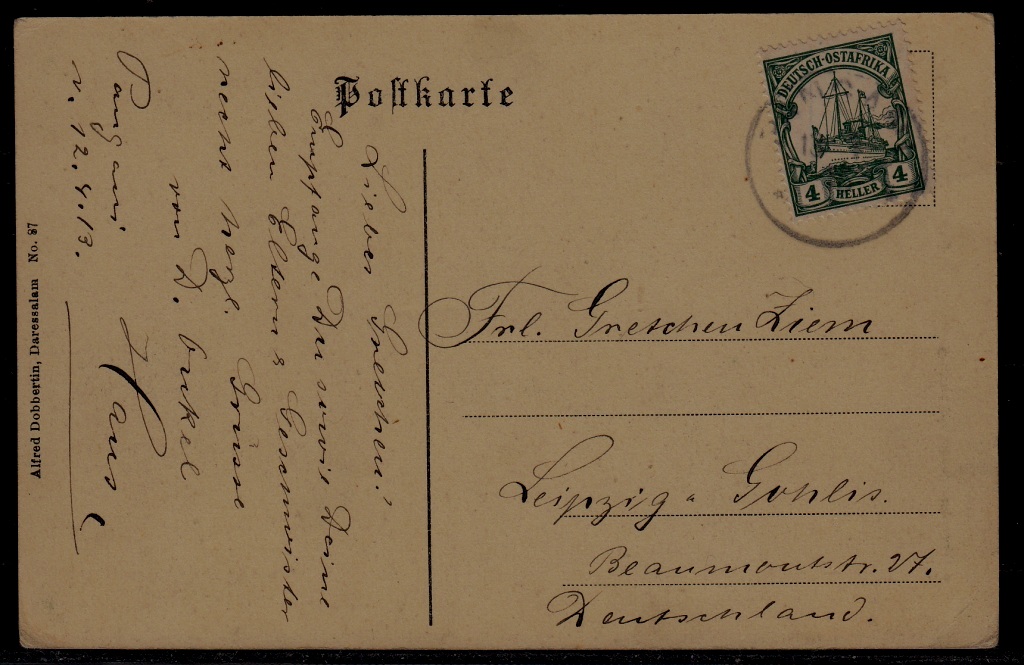 Postkarte
DEUTSCH-OSTAFRIKA
4 HELLER 4
Liebes Gretchen!
Empfange Du sowie Deine
lieben Eltern & Geschwister
recht herzl. Grüsse
von D. Onkel
Hans
Pangani
12.4.13.
Frl. Gretchen Ziem
Leipzig - Gohlis.
Beaumontstr. 27.
Deutschland.
Alfred Dobbertin, Daressalam No. 87